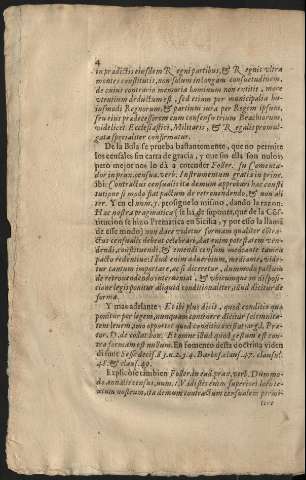 4
in prædictis eiusdem Regni partibus, & Regnis vltra
montes constitutis, non solum in longam consuetudinem,
de cuius contrarij memoria hominum non extitit, more
vtentium deductum est, sed etiam per municipalia hu
iusmodi Regnorum, & partium iura per Regem ipsum,
seu eius prædecessorem cum consensu trium Brachiorum,
videlicet Ecclesiastici, Militaris, & Regalis promul
gata specialiter confirmatur.
De la Bula se prueba bastantemente, que no permite
los censales sin carta de gracia, y que sin ella son nulos;
pero mejor nos lo dà a entender Foller. su Comenta-
dor in prax. census. verb. Instrumentum gratis in princ.
ibi: Contractus censualis ita demum approbari hac consti
tutione si modo stet pactum de retrouendendo, & non ali
ter. Y en el num. 7. prosigue lo mismo, dando la razon:
Hæc nostra pragmatica (se ha de suponer, que de la Cõs-
titucion se hizo Prematica en Sicilia, y por esso la llama
de esse modo) non dare videtur formam qualiter contra-
ctus censualis debeat celebrari, dat enim potestatem ven-
dendi, constituendi, & emendi censum mediante tamen
pacto redentiuo: illud enim aduerbium, mediante, vide-
tur tantum importare, ac si diceretur, dummodo pactum
de retrouendendo interueniat, & vbicumque in disposi-
cione legis ponitur aliquid conditionaliter, illud dicitur de
forma.
Y mas adelante: Et ibi plus dicit, quod conditio ap
ponitur per legem, nunquam contraere dicitur se simulta-
tem leuem, imo oportet quod conditio existat arg. l. Præ-
tor. D. de collat. bon. Et omne illud quod gestum est con
tra formam est nullum. En fomento desta doctrina viden
di sunt Sesse decis. 83. n. 2. 3. 4. Barbosa claus. 47. clausul.
48. & claus. 49.
Explicòse tambien Foller. in ead. prax. verb. Dummo-
do annalis census, num. 1. Vadit is enim superiori loco te-
xtum nostrum, ita demum contractum censualem permi-
tere